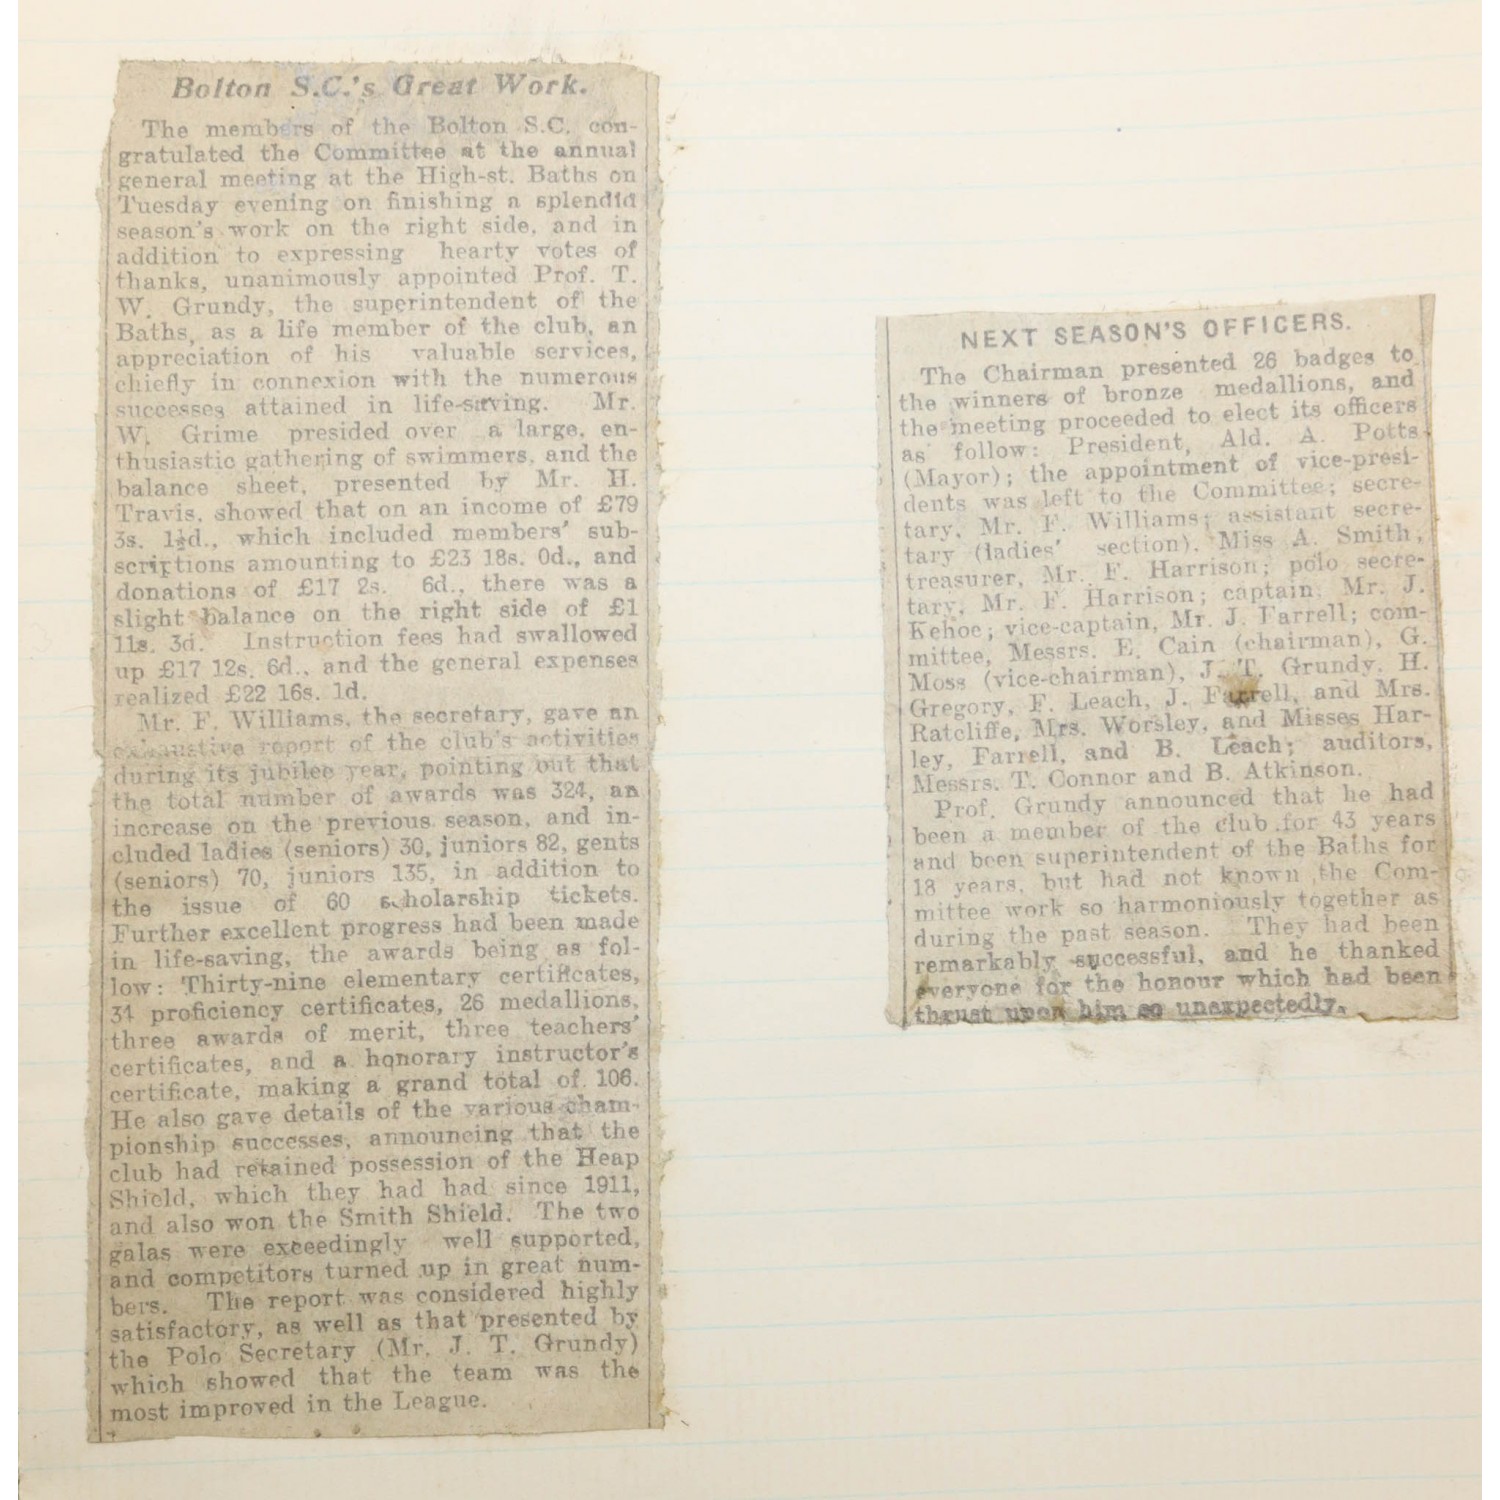 Bolton S.C.'s Great Work.
The members of the Bolton S.C. con-
gratulated the Committee at the annual
general meeting at the High-st. Baths on
Tuesday evening on finishing a splendid
season's work on the right side, and in
addition to expressing hearty votes of
thanks, unanimously appointed Prof. T.
W. Grundy, the superintendent of the
Baths, as a life member of the club, an
appreciation of his valuable services,
chiefly in connexion with the numerous
successes attained in life-saving. Mr.
W. Grime presided over a large, en-
thusiastic gathering of swimmers, and the
balance sheet, presented by Mr. H.
Travis, showed that on an income of £79
3s. 1½d., which included members' sub-
scriptions amounting to £23 18s. 0d., and
donations of £17 2s. 6d., there was a
slight balance on the right side of £1
11s. 3d. Instruction fees had swallowed
up £17 12s. 6d., and the general expenses
realized £22 16s. 1d.
Mr. F. Williams, the secretary, gave an
exhaustive report of the club's activities
during its jubilee year, pointing out that
the total number of awards was 324, an
increase on the previous season, and in-
cluded ladies (seniors) 30, juniors 82, gents
(seniors) 70, juniors 135, in addition to
the issue of 60 scholarship tickets.
Further excellent progress had been made
in life-saving, the awards being as fol-
low: Thirty-nine elementary certificates,
34 proficiency certificates, 26 medallions,
three awards of merit, three teachers'
certificates, and a honorary instructor's
certificate, making a grand total of 106.
He also gave details of the various cham-
pionship successes, announcing that the
club had retained possession of the Heap
Shield, which they had had since 1911,
and also won the Smith Shield. The two
galas were exceedingly well supported,
and competitors turned up in great num-
bers. The report was considered highly
satisfactory, as well as that presented by
the Polo Secretary (Mr. J. T. Grundy)
which showed that the team was the
most improved in the League.
NEXT SEASON'S OFFICERS.
The Chairman presented 26 badges to
the winners of bronze medallions, and
the meeting proceeded to elect its officers
as follow: President, Ald. A. Potts
(Mayor); the appointment of vice-presi-
dents was left to the Committee; secre-
tary, Mr. F. Williams; assistant secre-
tary (ladies' section), Miss A. Smith,
treasurer, Mr. F. Harrison; polo secre-
tary, Mr. F. Harrison; captain, Mr. J.
Kehoe; vice-captain, Mr. J. Farrell; com-
mittee, Messrs. E. Cain (chairman), G.
Moss (vice-chairman), J. T. Grundy, H.
Gregory, F. Leach, J. Farrell, and Mrs.
Ratcliffe, Mrs. Worsley, and Misses Har-
ley, Farrell, and B. Leach; auditors,
Messrs. T. Connor and B. Atkinson.
Prof. Grundy announced that he had
been a member of the club for 43 years
and been superintendent of the Baths for
18 years, but had not known the Com-
mittee work so harmoniously together as
during the past season. They had been
remarkably successful, and he thanked
everyone for the honour which had been
thrust upon him so unexpectedly.